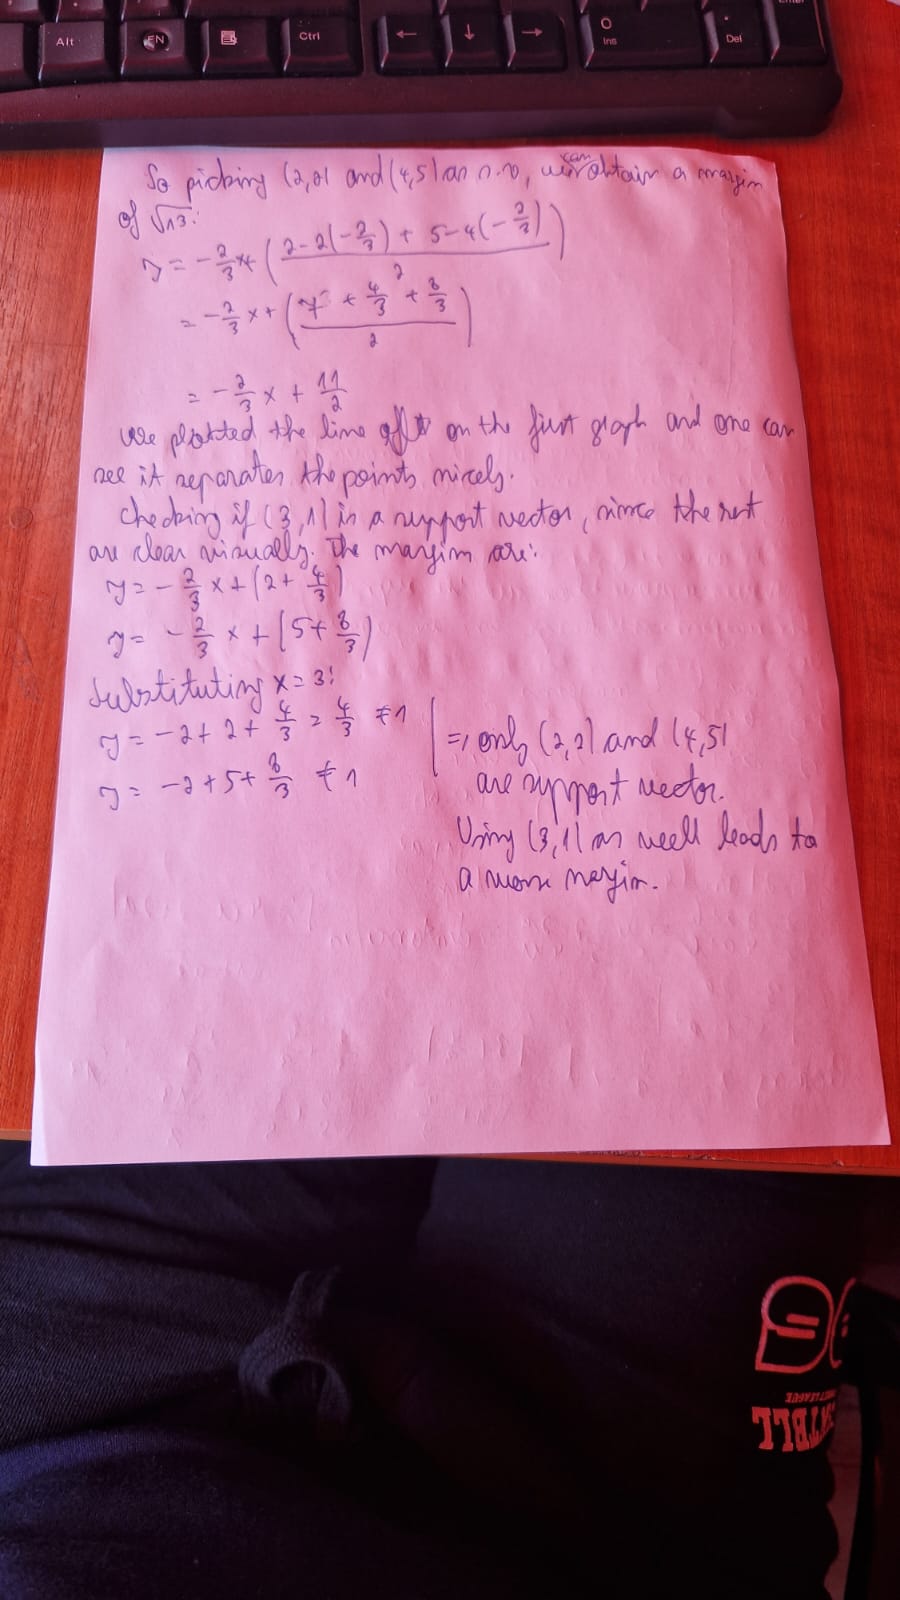 Alt
EN
Ctrl
←
↓
→
0
Ins
.
Del
Enter
So picking (2,2) and (4,5) as n.v, we can obtain a margin
of √13:
y = -2/3 x + ( (2-2(-2/3) + 5-4(-2/3)) / 2 )
= -2/3 x + ( (7 + 4/3 + 8/3) / 2 )
= -2/3 x + 11/2
We plotted the line on the first graph and one can
see it separates the points nicely.
Checking if (3,1) is a support vector, since the rest
are clear visually. The margins are:
y = -2/3 x + (2 + 4/3)
y = -2/3 x + (5 + 8/3)
Substituting x = 3:
y = -2 + 2 + 4/3 = 4/3 ≠ 1
y = -2 + 5 + 8/3 ≠ 1
=> only (2,2) and (4,5)
are support vector.
Using (3,1) as well leads to
a worse margin.